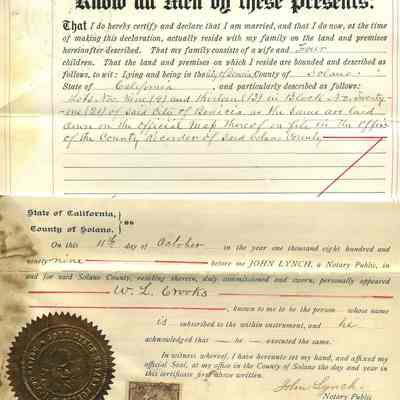 Know all Men by these Presents:
That I do hereby certify and declare that I am married, and that I do now, at the time
of making this declaration, actually reside with my family on the land and premises
hereinafter described. That my family consists of a wife and Four
children. That the land and premises on which I reside are bounded and described
as follows, to wit: Lying and being in the City of Benicia County of Solano
State of California, and particularly described as follows:
Lots No. Nine (9) and thirteen (13) in Block No. Twenty-
one (21) of Said City of Benicia, as the same are laid
down on the Official Map thereof on file in the Office
of the County Recorder of Said Solano County
State of California,
County of Solano. } ss
On this 11th day of October in the year one thousand eight hundred and
ninety nine before me JOHN LYNCH, a Notary Public, in
and for said Solano County, residing therein, duly commissioned and sworn, personally appeared
W. L. Crooks
, known to me to be the person whose name
is subscribed to the within instrument, and he
acknowledged that he executed the same.
In witness whereof, I have hereunto set my hand, and affixed my
official Seal, at my office in the County of Solano the day and year in
this certificate first above written.
John Lynch
Notary Public